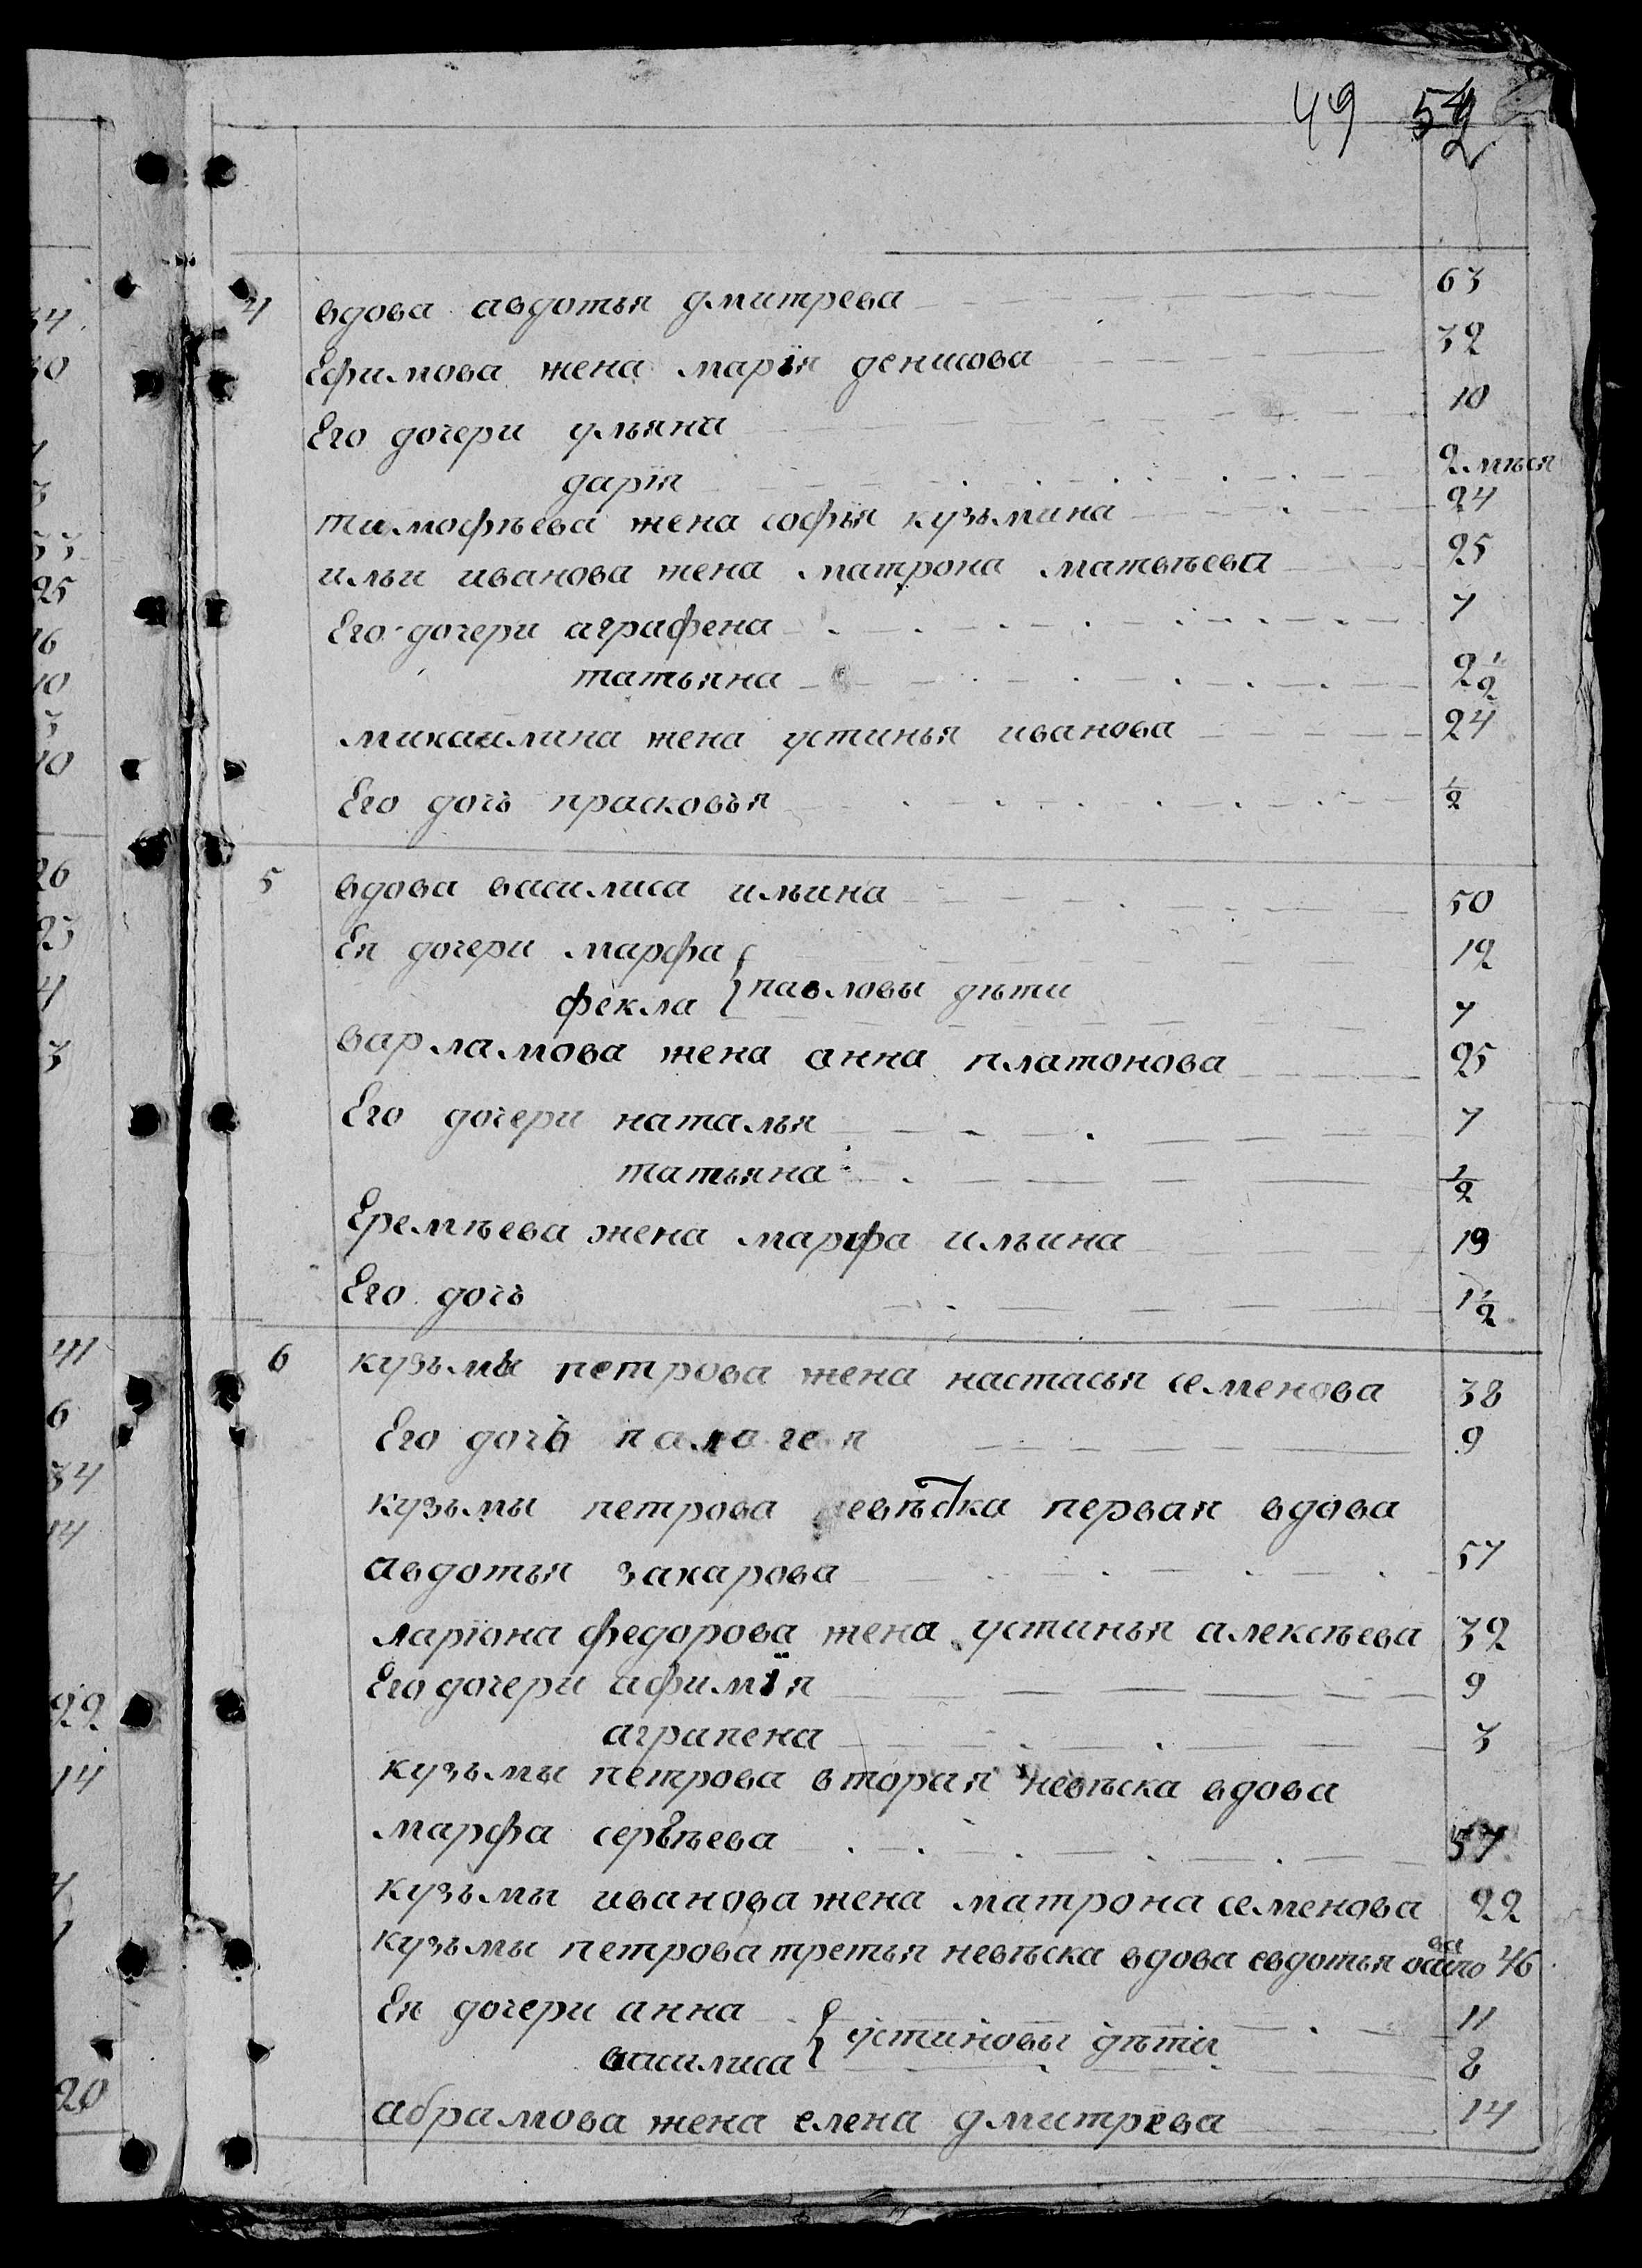 49 52
4 вдова авдотья дмитрева 63
Ефимова жена марїя денисова 32
Его дочери ульяна 10
дарїя 2 мѣся
тимофѣева жена софья кузьмина 24
ильи иванова жена матрона матвѣева 25
Его дочери аграфена 7
татьяна 2 1/2
михаилина жена устинья иванова 24
Его дочь прасковья 1/2
5 вдова василиса ильина 50
Ея дочери марфа 12
павловы дѣти
фекла 7
варламова жена анна платонова 25
Его дочери наталья 7
татьяна 1/2
Еремѣева жена марфа ильина 19
Его дочь 1 1/2
6 кузьмы петрова жена настасья семенова 38
Его дочь палагея 9
кузьмы петрова невѣстка первая вдова
авдотья захарова 57
ларїона федорова жена устинья алексѣева 32
Его дочери афимїя 9
аграпена 3
кузьмы петрова вторая невѣска вдова
марфа сергѣева 57
кузьмы иванова жена матрона семенова 22
кузьмы петрова третья невѣска вдова евдотья осипова 46
Ея дочери анна 11
устиновы дѣти
василиса 8
абрамова жена елена дмитрева 14
34
30
7
3
33
25
16
10
3
10
26
23
4
3
41
6
34
14
22
14
20